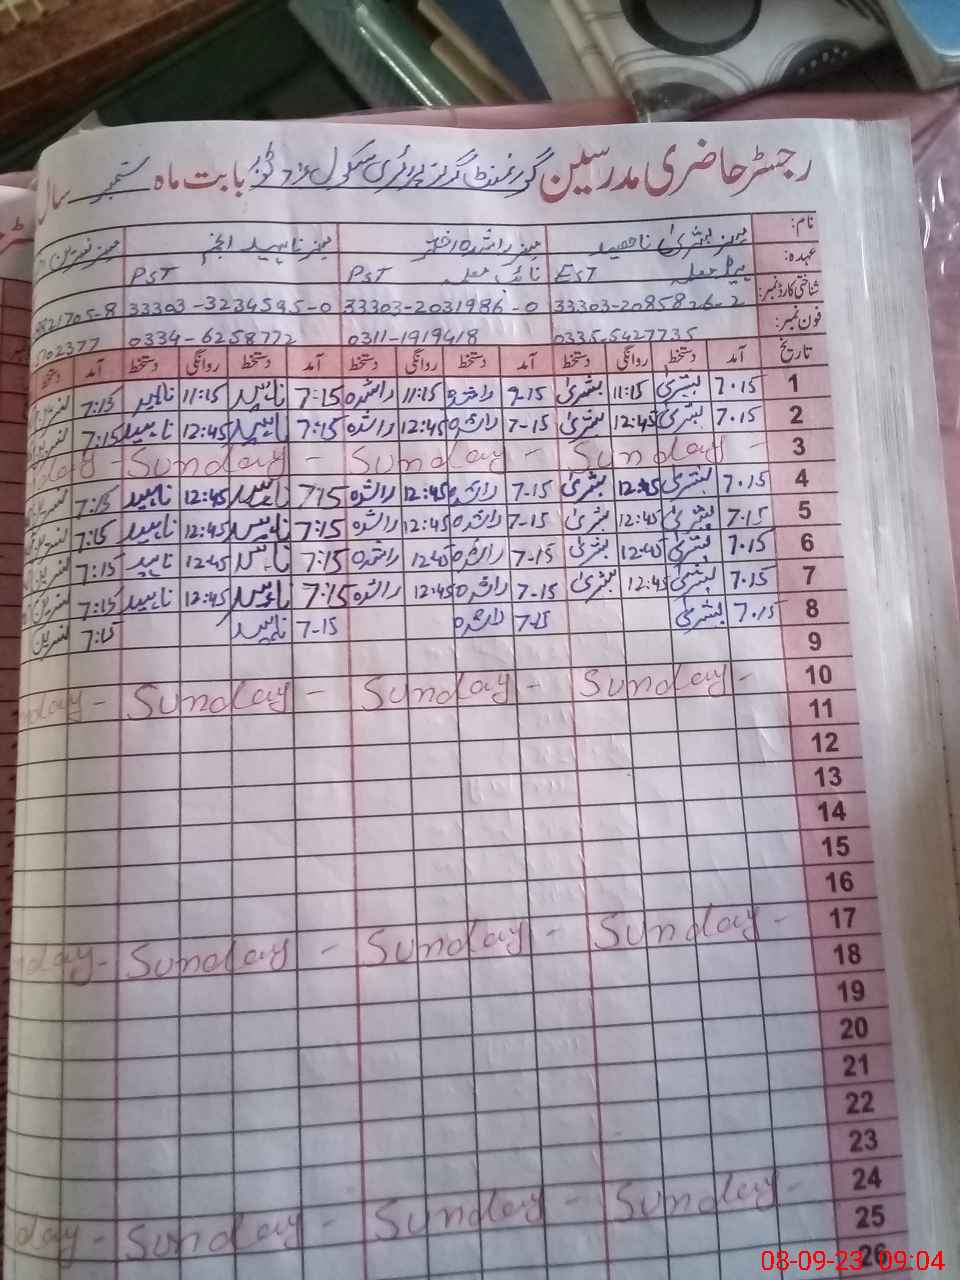 رجسٹر حاضری مدرسین گورنمنٹ گرلز پرائمری سکول بابت ماہ ستمبر سال
نام: مسز بشریٰ ناہید مسز راشدہ اختر مسز ناہید انجم
عہدہ: ہیڈ معلمہ EST نائب معلمہ PST PST
شناختی کارڈ نمبر: 33303-2085826-2 33303-2031986-0 33303-3234595-0 821705-8
فون نمبر: 0335-5427735 0311-1919418 0334-6258772 02377
تاریخ آمد دستخط روانگی دستخط آمد دستخط روانگی دستخط آمد دستخط روانگی دستخط آمد دستخط
1 7.15 بشریٰ 11:15 بشریٰ 9-15 راشدہ 11:15 راشدہ 7:15 ناہید 11:15 ناہید 7:15 نسرین
2 7.15 بشریٰ 12:45 بشریٰ 7-15 راشدہ 12:45 راشدہ 7:15 ناہید 12:45 ناہید 7:15 نسرین
3 Sunday - Sunday - Sunday - day -
4 7.15 بشریٰ 12:45 بشریٰ 7-15 راشدہ 12:45 راشدہ 7:15 ناہید 12:45 ناہید 7:15 نسرین
5 7:15 بشریٰ 12:45 بشریٰ 7-15 راشدہ 12:45 راشدہ 7:15 ناہید 12:45 ناہید 7:15 نسرین
6 7.15 بشریٰ 12:45 بشریٰ 7-15 راشدہ 12:45 راشدہ 7:15 ناہید 12:45 ناہید 7:15 نسرین
7 7.15 بشریٰ 12:45 بشریٰ 7-15 راشدہ 12:45 راشدہ 7:15 ناہید 12:45 ناہید 7:15 نسرین
8 7.15 بشریٰ 7-15 راشدہ 7-15 ناہید 7:15 نسرین
9
10 Sunday - Sunday - Sunday - nday -
11
12
13
14
15
16
17 Sunday - Sunday - Sunday - nday -
18
19
20
21
22
23
24 Sunday - Sunday - Sunday - day -
25
26
08-09-23 09:04